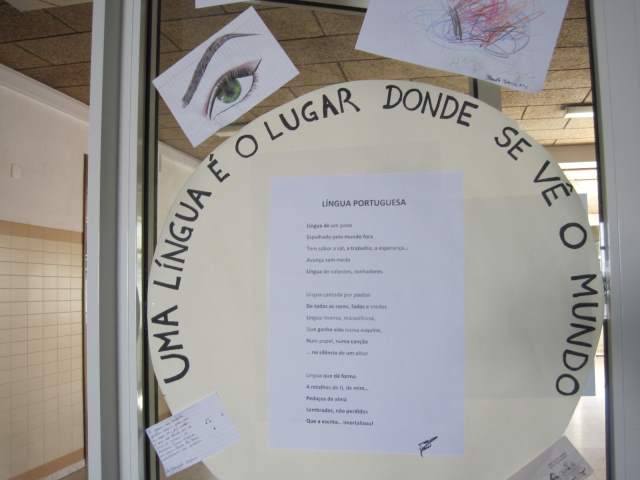 UMA LÍNGUA É O LUGAR DONDE SE VÊ O MUNDO
LÍNGUA PORTUGUESA
Língua de um povo
Espalhado pelo mundo fora
Tem sabor a sal, a trabalho, a esperança...
Avança sem medo
Língua de valentes, sonhadores.
Língua cantada por poetas
De todas as cores, fados e
Língua imensa, maravilhosa,
Que ganha vida numa esquina,
Num papel, numa canção
... no silêncio de um olhar
Língua que dá forma
A retalhos de ti, de mim...
Pedaços de alma
Lembrados, não perdidos
Que a escrita... imortalizou!